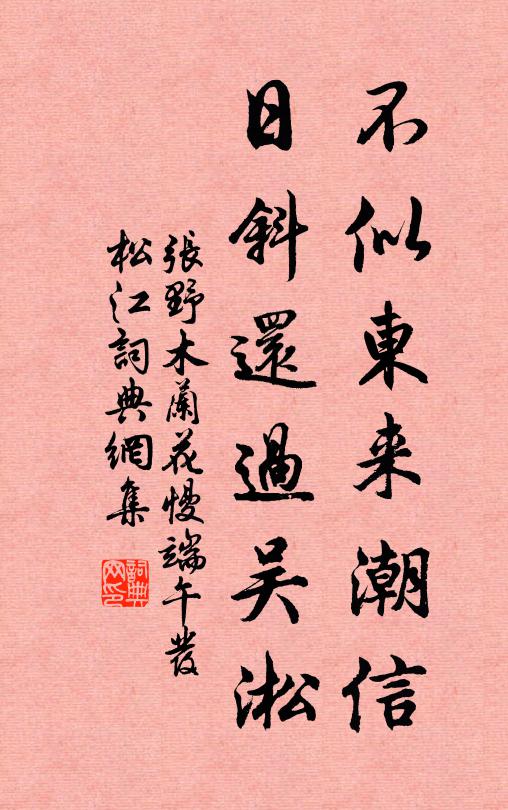 不似東来潮信
日斜還過吴淞
張野木蘭花慢端午發
松江詞典網集
詞典
网印